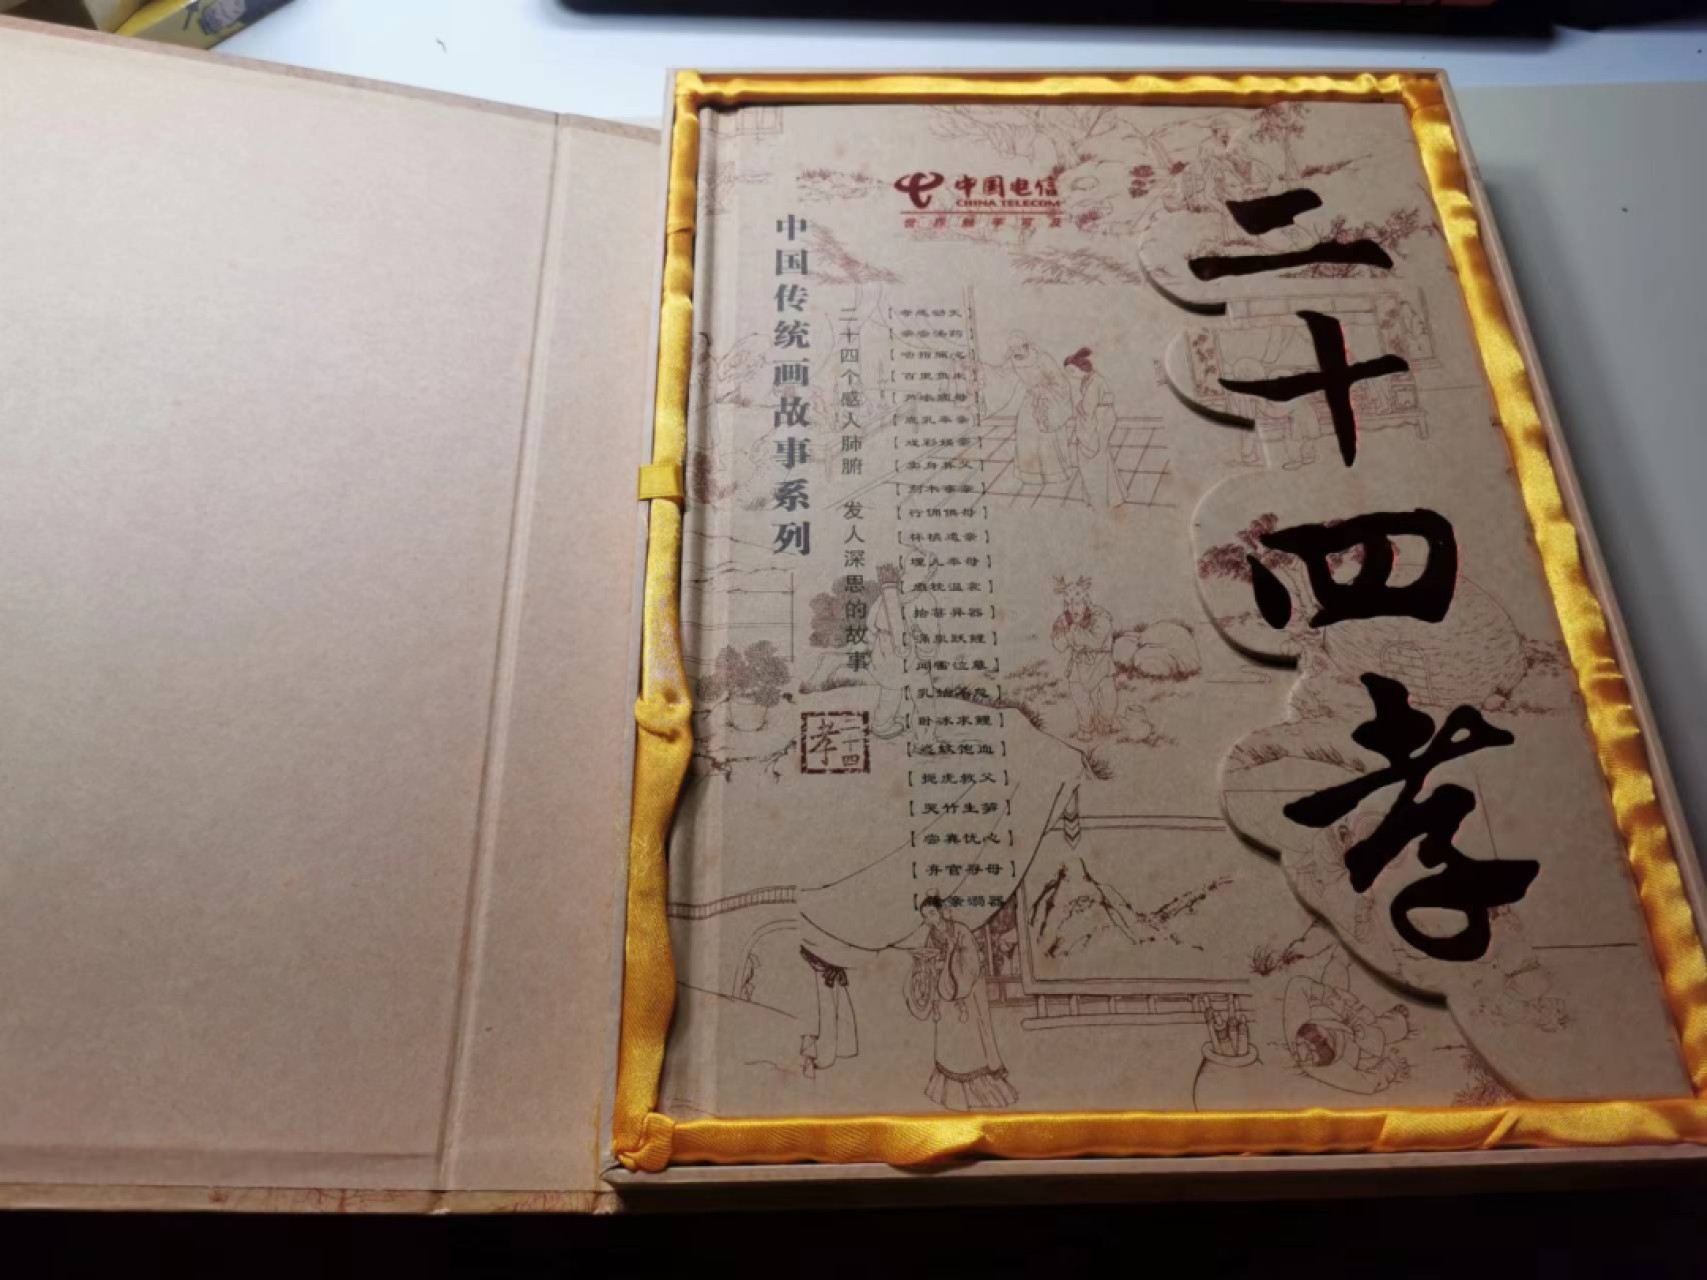 中国电信
CHINA TELECOM
世界触手可及
二十四孝
中国传统画故事系列
二十四个感人肺腑 发人深思的故事
【孝感动天】
【亲尝汤药】
【啮指痛心】
【百里负米】
【芦衣顺母】
【鹿乳奉亲】
【戏彩娱亲】
【卖身葬父】
【刻木事亲】
【行佣供母】
【怀橘遗亲】
【埋儿奉母】
【扇枕温衾】
【拾葚异器】
【涌泉跃鲤】
【闻雷泣墓】
【乳姑不怠】
【卧冰求鲤】
【恣蚊饱血】
【扼虎救父】
【哭竹生笋】
【尝粪忧心】
【弃官寻母】
【涤亲溺器
二十四
孝